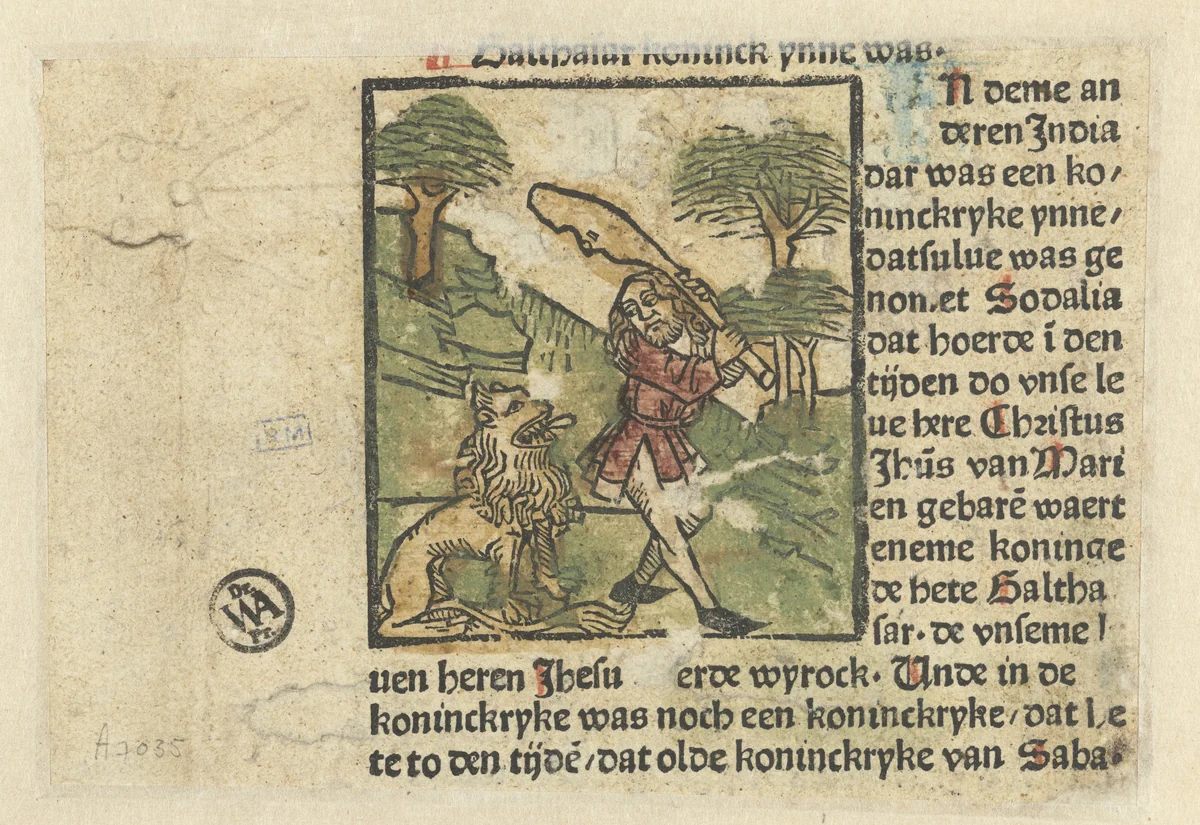 Balthasar koninck ynne was.
N deme an
deren India
dar was een ko/
ninckryke ynne/
datsulue was ge
non.et Godalia
dat hoerde ī den
tijden do vnse le
ue here Christus
Jhūs van Mari
en gebarē waert
eneme koninge
de hete Baltha
sar. de vnseme l
uen heren Jhesu erde wyrock. Unde in de
koninckryke was noch een koninckryke/dat
te to den tijdē/dat olde koninckryke van Saba.
RM
A 2035